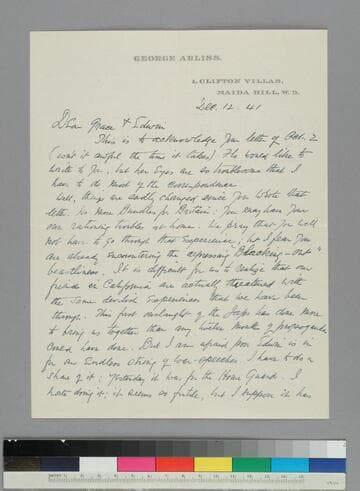 GEORGE ARLISS.
1, CLIFTON VILLAS,
MAIDA HILL, W. 9.
Dec. 12. 41
Dear Grace & Edwin
This is to acknowledge your letter of Oct. 2
(isn't it awful the time it takes) Flo would like to
write to you, but her eyes are so troublesome that I
have to do most of the correspondence.
Well, things are sadly changed since you wrote that
letter. No more Bundles for Britain: you may have your
own rationing troubles at home. We pray that you will
not have to go through that experience, but I fear you
are already encountering the depressing "Blacking-out"
beastliness. It is difficult for us to realize that our
friends in California are actually threatened with
the same devilish experiences that we have been
through. This first onslaught of the Japs has done more
to bring us together than any further months of propaganda
could have done. But I am afraid poor Edwin is in
for an endless string of war-speeches. I have to do a
share of it: yesterday it was for the Home Guard. I
hate doing it; it seems so futile, but I suppose it has